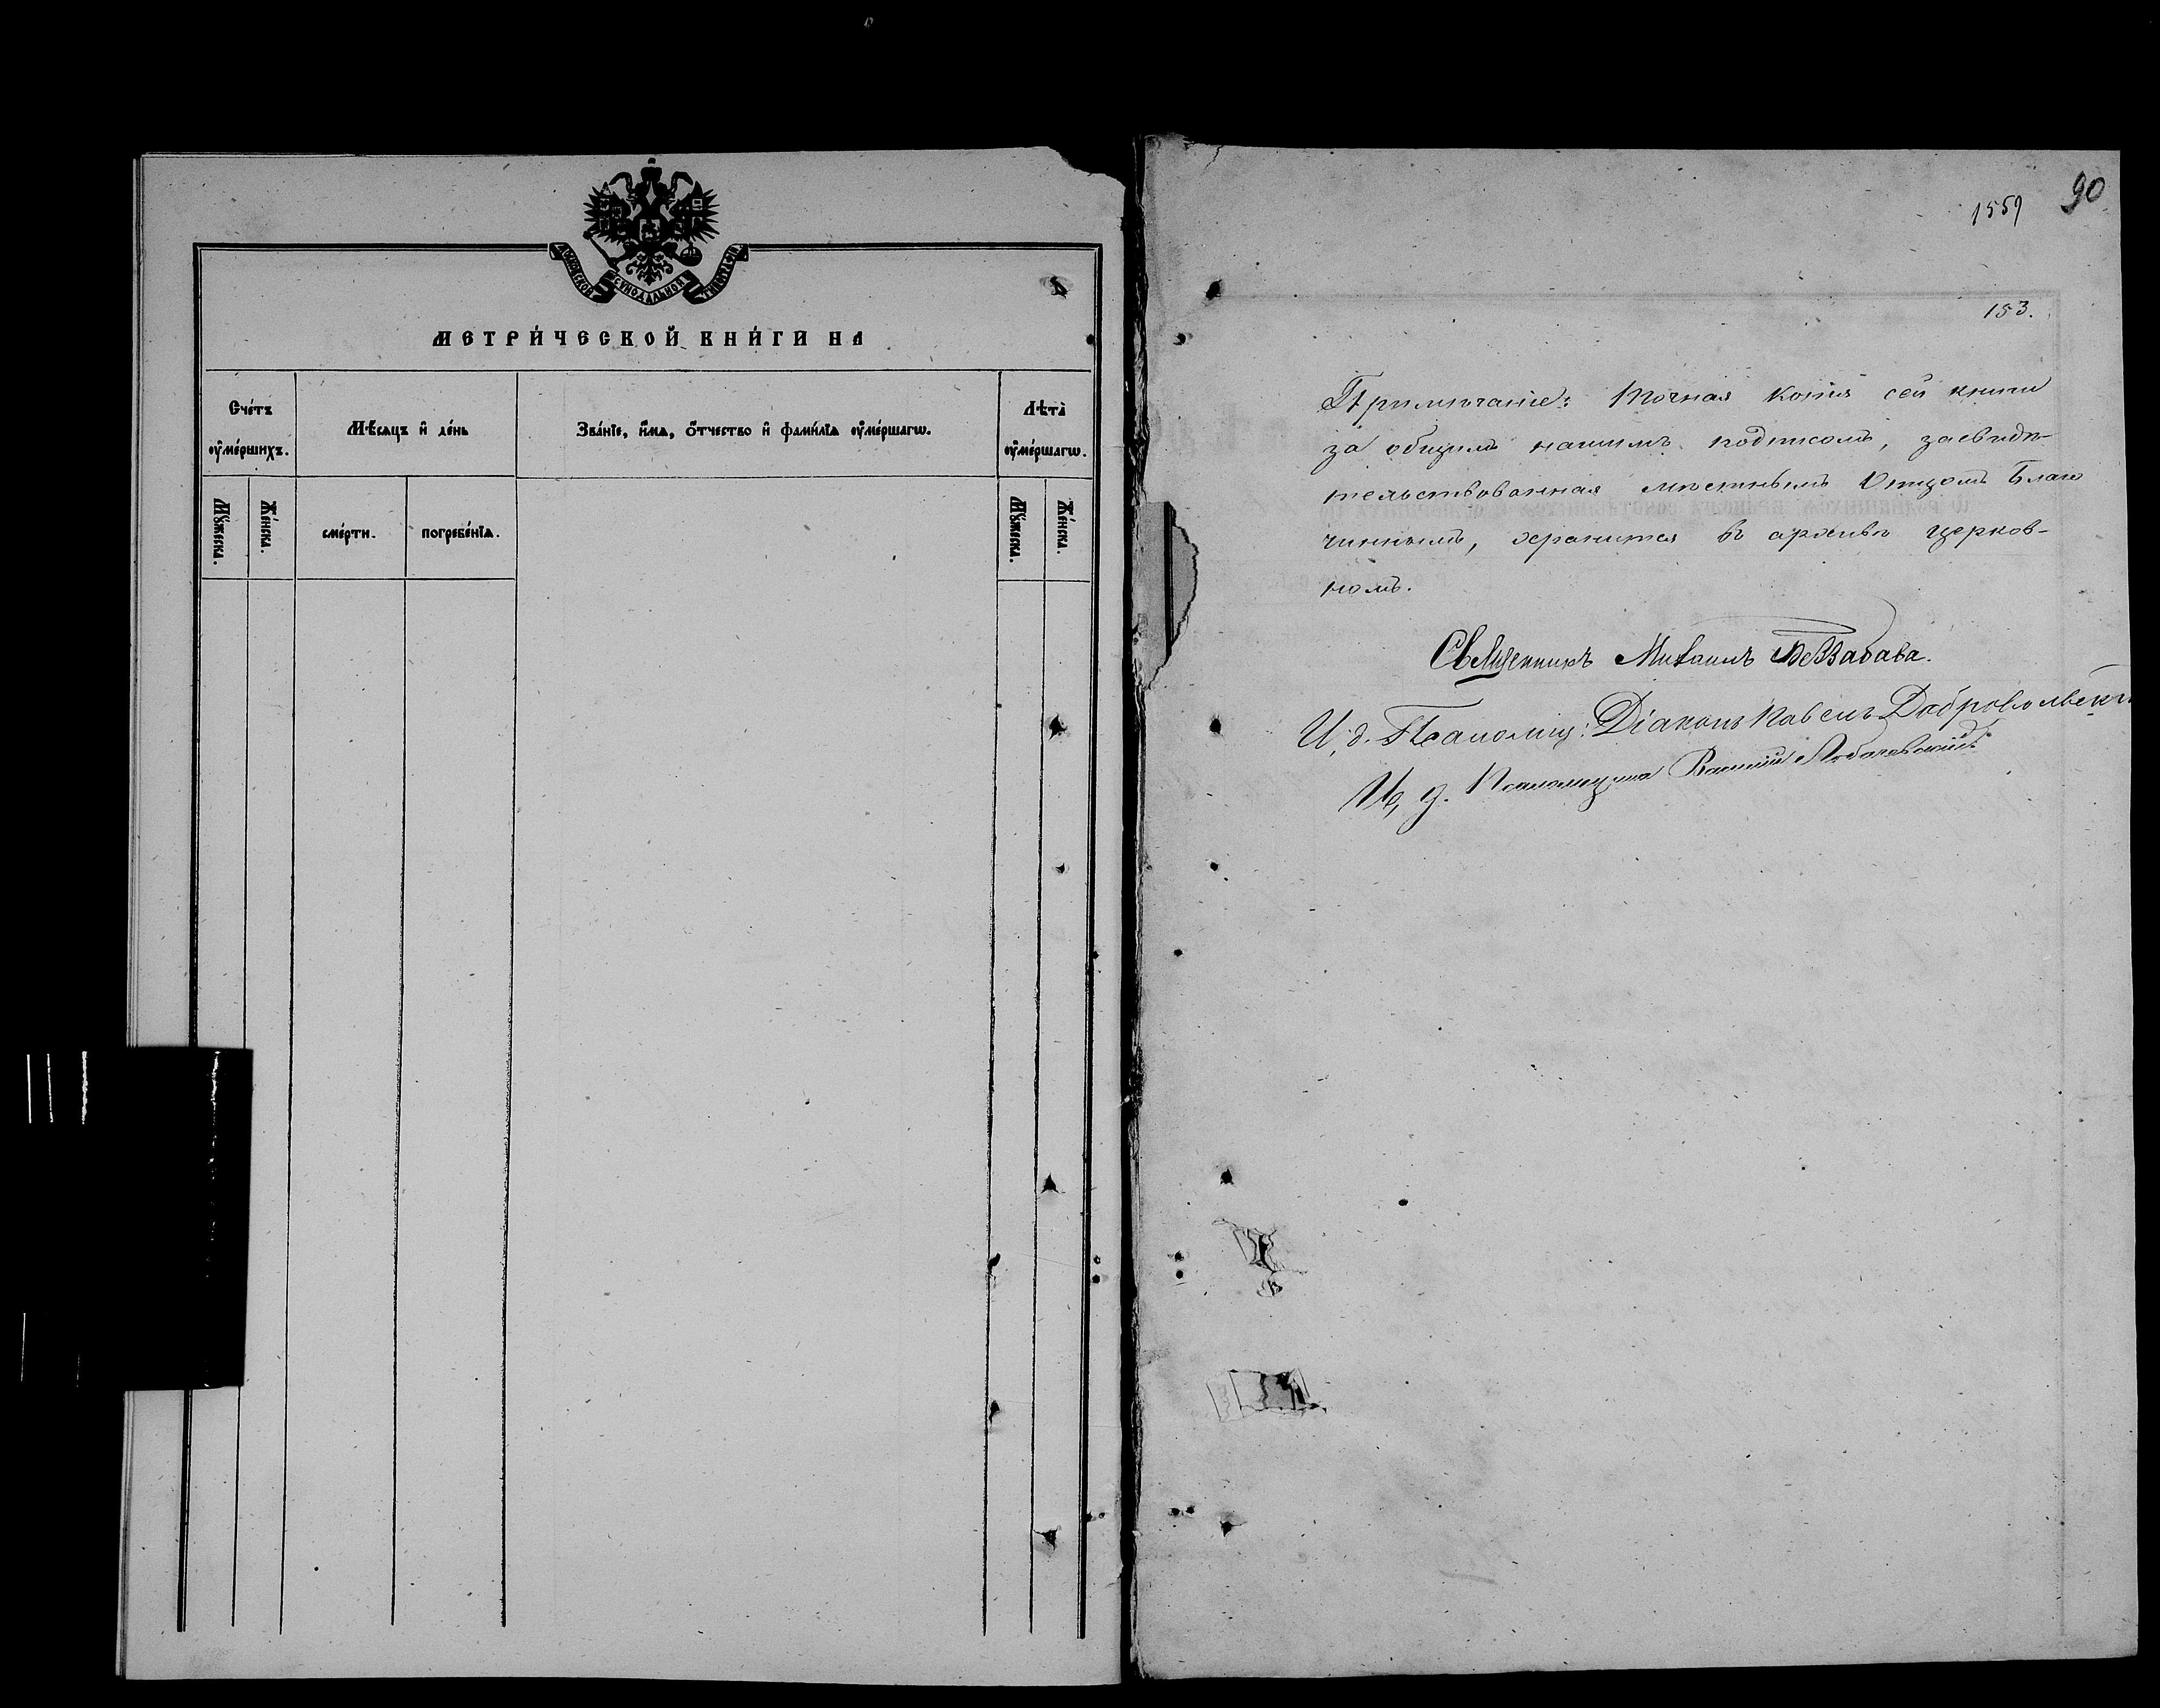 МОСКОВСКОЙ СѴНОДАЛЬНОЙ ТИПОГРАФІИ
МЕТРИ́ЧЕСКОЙ КНИ́ГИ НА
Сче́тъ ᲂу҆ме́ршихъ.
Мѣ́сяцъ и҆ де́нь
Зва́нїе, и҆́мѧ, ѻ҆́тчество и҆ фами́лїѧ ᲂу҆ме́ршагѡ.
Лѣ́та ᲂу҆ме́ршагѡ.
Мꙋ́жеска.
Же́нска.
сме́рти.
погребе́нїѧ.
Мꙋ́жеска.
Же́нска.
90
1559
153.
Примѣчаніе: Точная копія сей книги
за общимъ нашимъ подписомъ, засвидѣ-
тельствованная мѣстнымъ Отцомъ Благо
чиннымъ, хранится въ архивѣ церков-
номъ.
Священникъ Михаилъ
И. д. Псаломщ: Діаконъ Павелъ Добровольскій
И, д. Псаломщика Василій